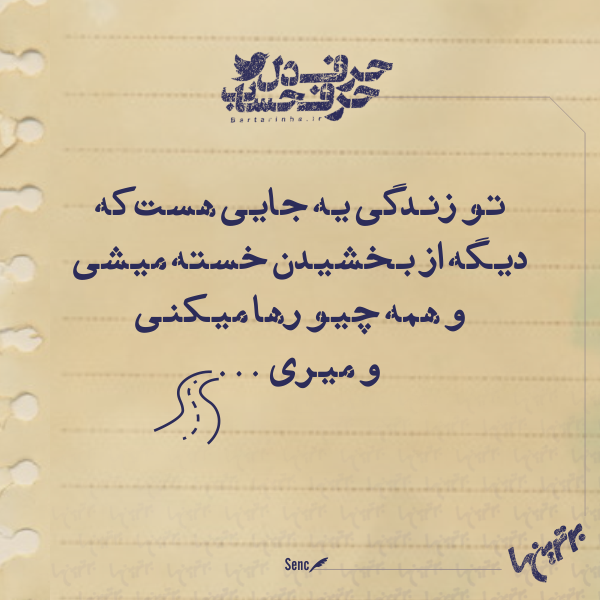 حرف دل
حرف حساب
Bartarinha.ir
تو زندگی یه جایی هست که
دیگه از بخشیدن خسته میشی
و همه چیو رها میکنی
و میری ...
Senc
برترینها